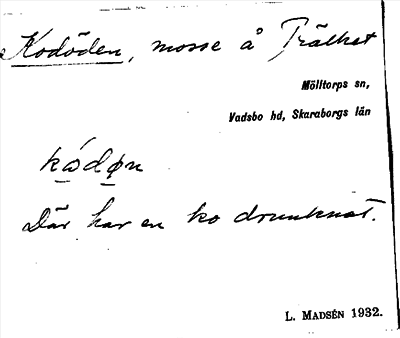 Kodöden, mosse å Trälhet
Mölltorps sn,
Vadsbo hd, Skaraborgs län
kódǿn
Där har en ko drunknat.
L. MADSÉN 1932.